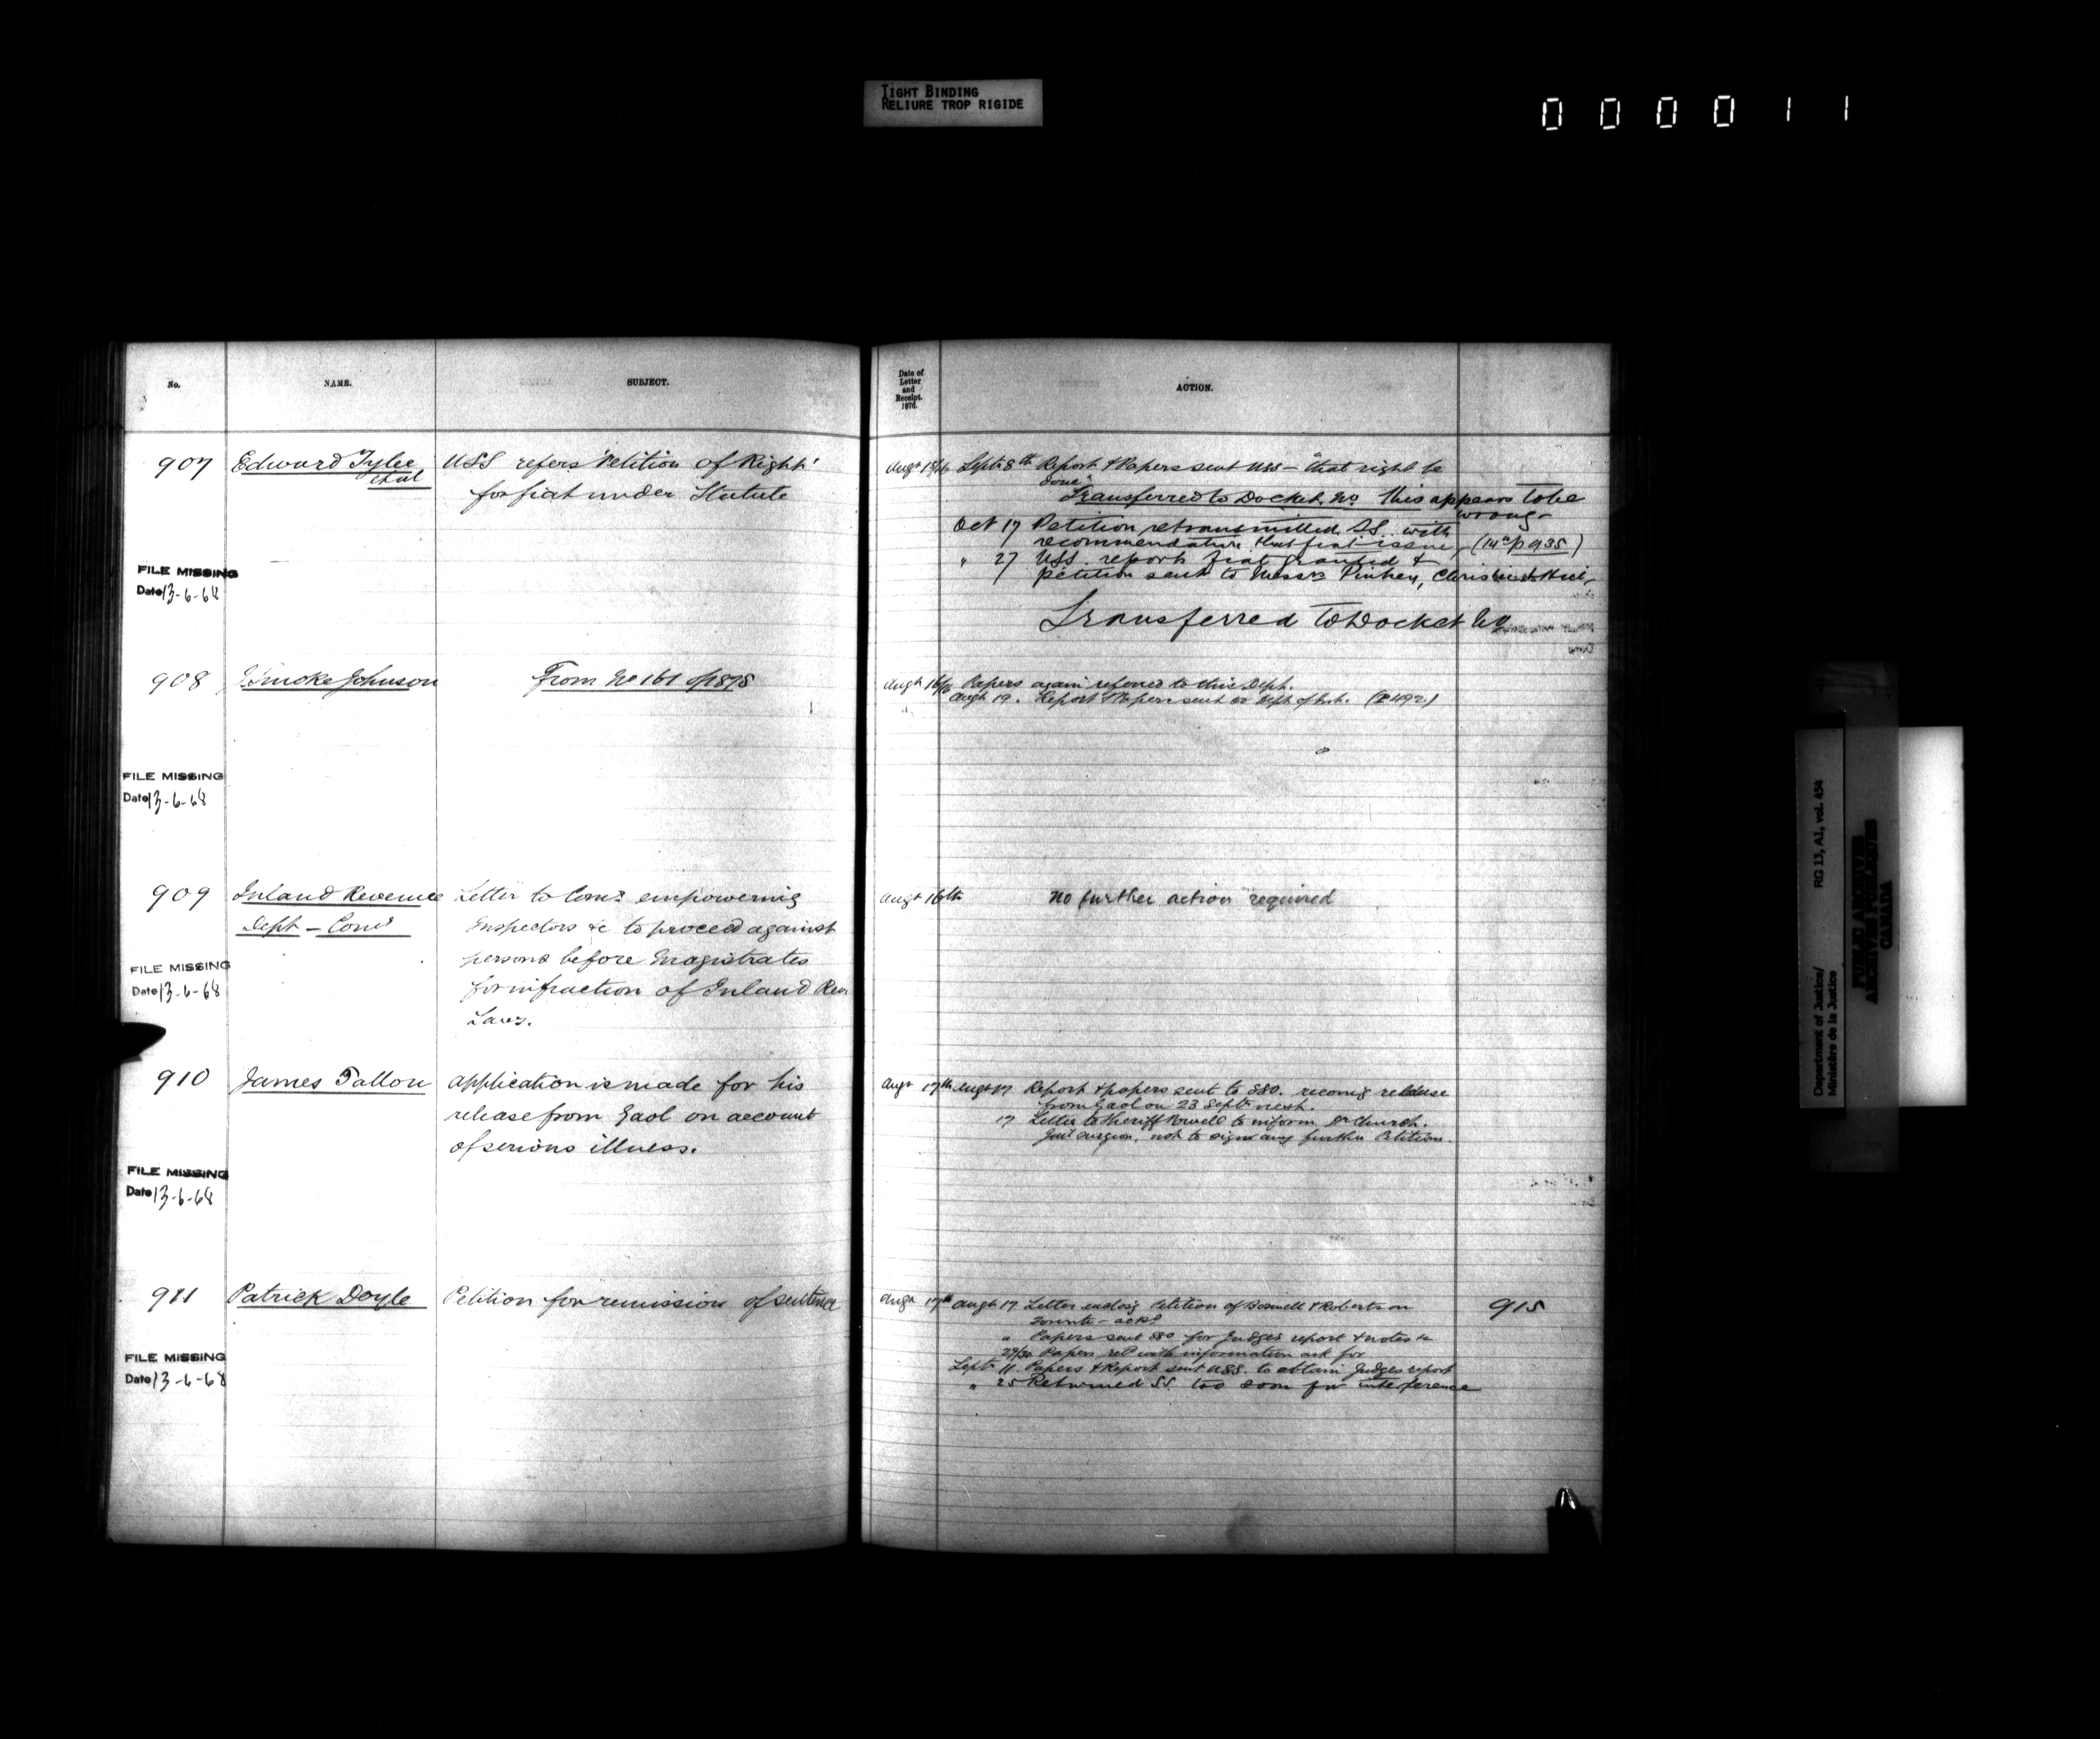 TIGHT BINDING
RELIURE TROP RIGIDE
000011
No.
NAME.
SUBJECT.
Date of
Letter
and
Receipt.
1876.
ACTION.
907 Edward Tylee et al
USS refers 'Petition of Right'
for fiat under Statute
Sept 8th Report & Papers sent USS – "that right be
done"
Transferred to Docket. No. This appears to be
wrong –
Oct 17 Petition retransmitted SS. with
recommendation that fiat issue, (14c/p 935)
" 27 USS. report fiat granted &
petition sent to Messrs
Transferred to Docket No
FILE MISSING
Date 13-6-68
908 Smoke Johnson
From No 161 of 1875
Augt 16/76 Papers again referred to this Dept.
Augt 19. Report & Papers sent to Dept of Int. (P492)
FILE MISSING
Date 13-6-68
909 Inland Revenue
Dept – Comr
Letter to Comr empowering
Inspectors &c to proceed against
persons before Magistrates
for infraction of Inland Rev.
Laws.
Augt 16th No further action required
FILE MISSING
Date 13-6-68
910 James Fallon
Application is made for his
release from Gaol on account
of serious illness.
Augt 17th Augt 17 Report & papers sent to SSO. recomg release
from Gaol on 23 Septr next.
17 Letter to Sheriff Powell to inform Dr Church.
Gaol surgeon, not to sign any further Petitions.
FILE MISSING
Date 13-6-68
911 Patrick Doyle
Petition for remission of sentence
Augt 17th Augt 17 Letter enclosg Petition of Boswell & Robertson
Toronto – ackd
915
" Papers sent SSO for Judges report & notes &c
29/30 Papers retd with information ask for
Septr 11. Papers & Report sent USS. to obtain Judges report
" 25 Returned SS. too soon for interference
FILE MISSING
Date 13-6-68
Department of Justice/
Ministère de la Justice
RG 13, A1, vol. 454
PUBLIC ARCHIVES
ARCHIVES PUBLIQUES
CANADA